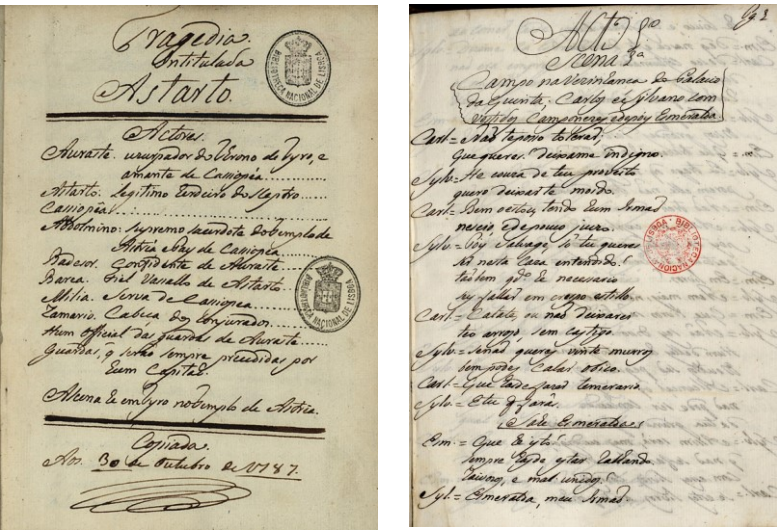 Tragedia.
Intitulada
Astarto.
BIBLIOTHECA NACIONAL DE LISBOA
Actores.
Auraste. uzurpador do Throno de Tyro, e
amante de Cassiopéa
Astarto. Legitimo Erdeiro do Sceptro
Cassiopéa
Abdolmino: Supremo sacerdote do templo de
Astréa e Pay de Cassiopéa
Badesor. Confidente de Auraste
Barca. Fiel Vasallo de Astarto
Milia. Serva de Cassiopea
Zamario. Cabeca dos Conjurados
Hum official das guardas de Auraste
Guardas, q serão sempre precedidas por
Hum Capitão.
A Scena he em Tyro no templo de Astréa.
BIBLIOTHECA NACIONAL DE LISBOA
Copiada.
Aos. 30 de Outubro de 1787.
Acto
Scena
Campo na vezinhanca do Palacio
da Quinta; Carlos e Silvano com
vestidos Camponezes e depois Esmeralda
Carl = Não te posso tolerar;
Que queres? deixame indigno.
Sylv = He couza de teu proveito
quero deixarte mordo.
Carl = Bem estou, tendo hum Irmão
nescio, e de pouco juizo.
Sylv = Soy Salvage só tu queres
ser nesta Caza entendido?
tãobem q.do he necessario
sey fallar em crespo estillo.
Carl = Calate, ou não deixarei
teu arrojo sem castigo.
Sylv = Senão queres vinte murros
bem podes Calar o bico.
Carl = Que farás temerario
Sylv = E tu q farás.
Sale Esmeralda
Esm. = Que he isto?
sempre hejde estar ralhando
e mal unidos.
Syl = Esmeralda, meu Irmão
LISBOA · BIBLIOTECA NACIONAL